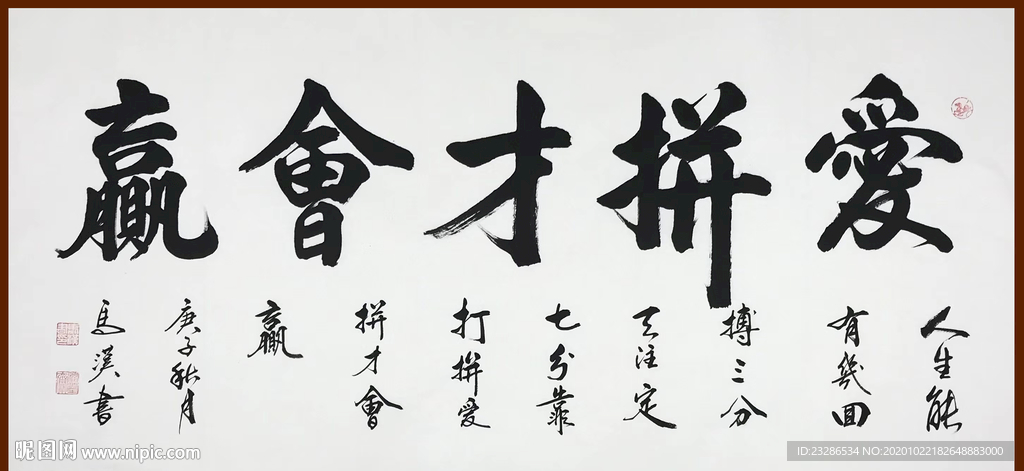 愛拼才會贏
人生能
有幾回
搏三分
天注定
七分靠
打拼愛
拼才會
贏
庚子秋月
馬漢書
昵图网 www.nipic.com
ID:23286534 NO:20201022182648883000